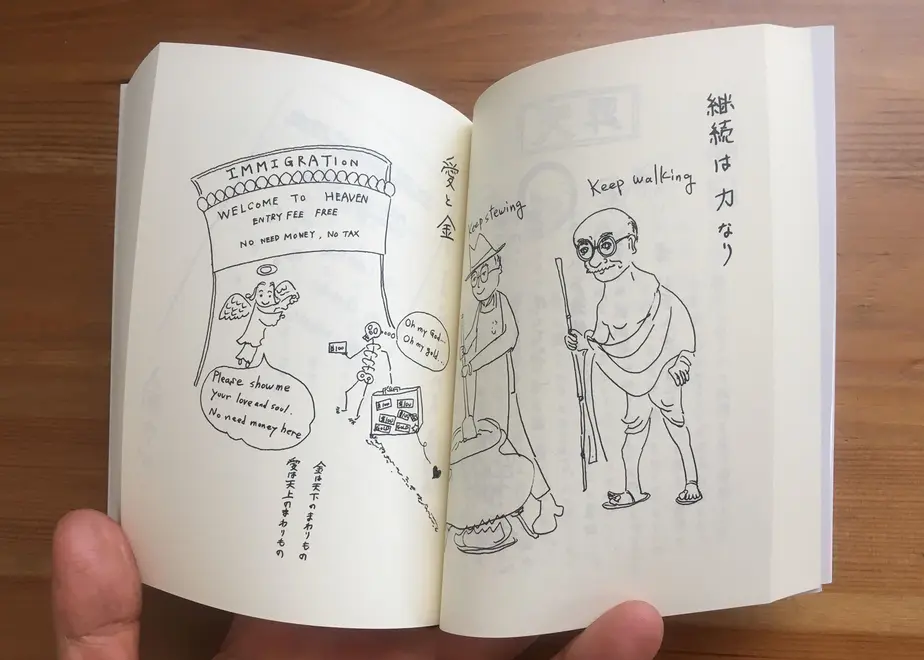 愛と金
IMMIGRATION
WELCOME TO HEAVEN
ENTRY FEE FREE
NO NEED MONEY, NO TAX
Oh my God...
Oh my gold...
$100
Please show me
your love and soul.
No need money here
$100 $100
$100
GOLD GOLD
金は天下のまわりもの
愛は天上のまわりもの
継続は力なり
Keep walking
Keep stewing